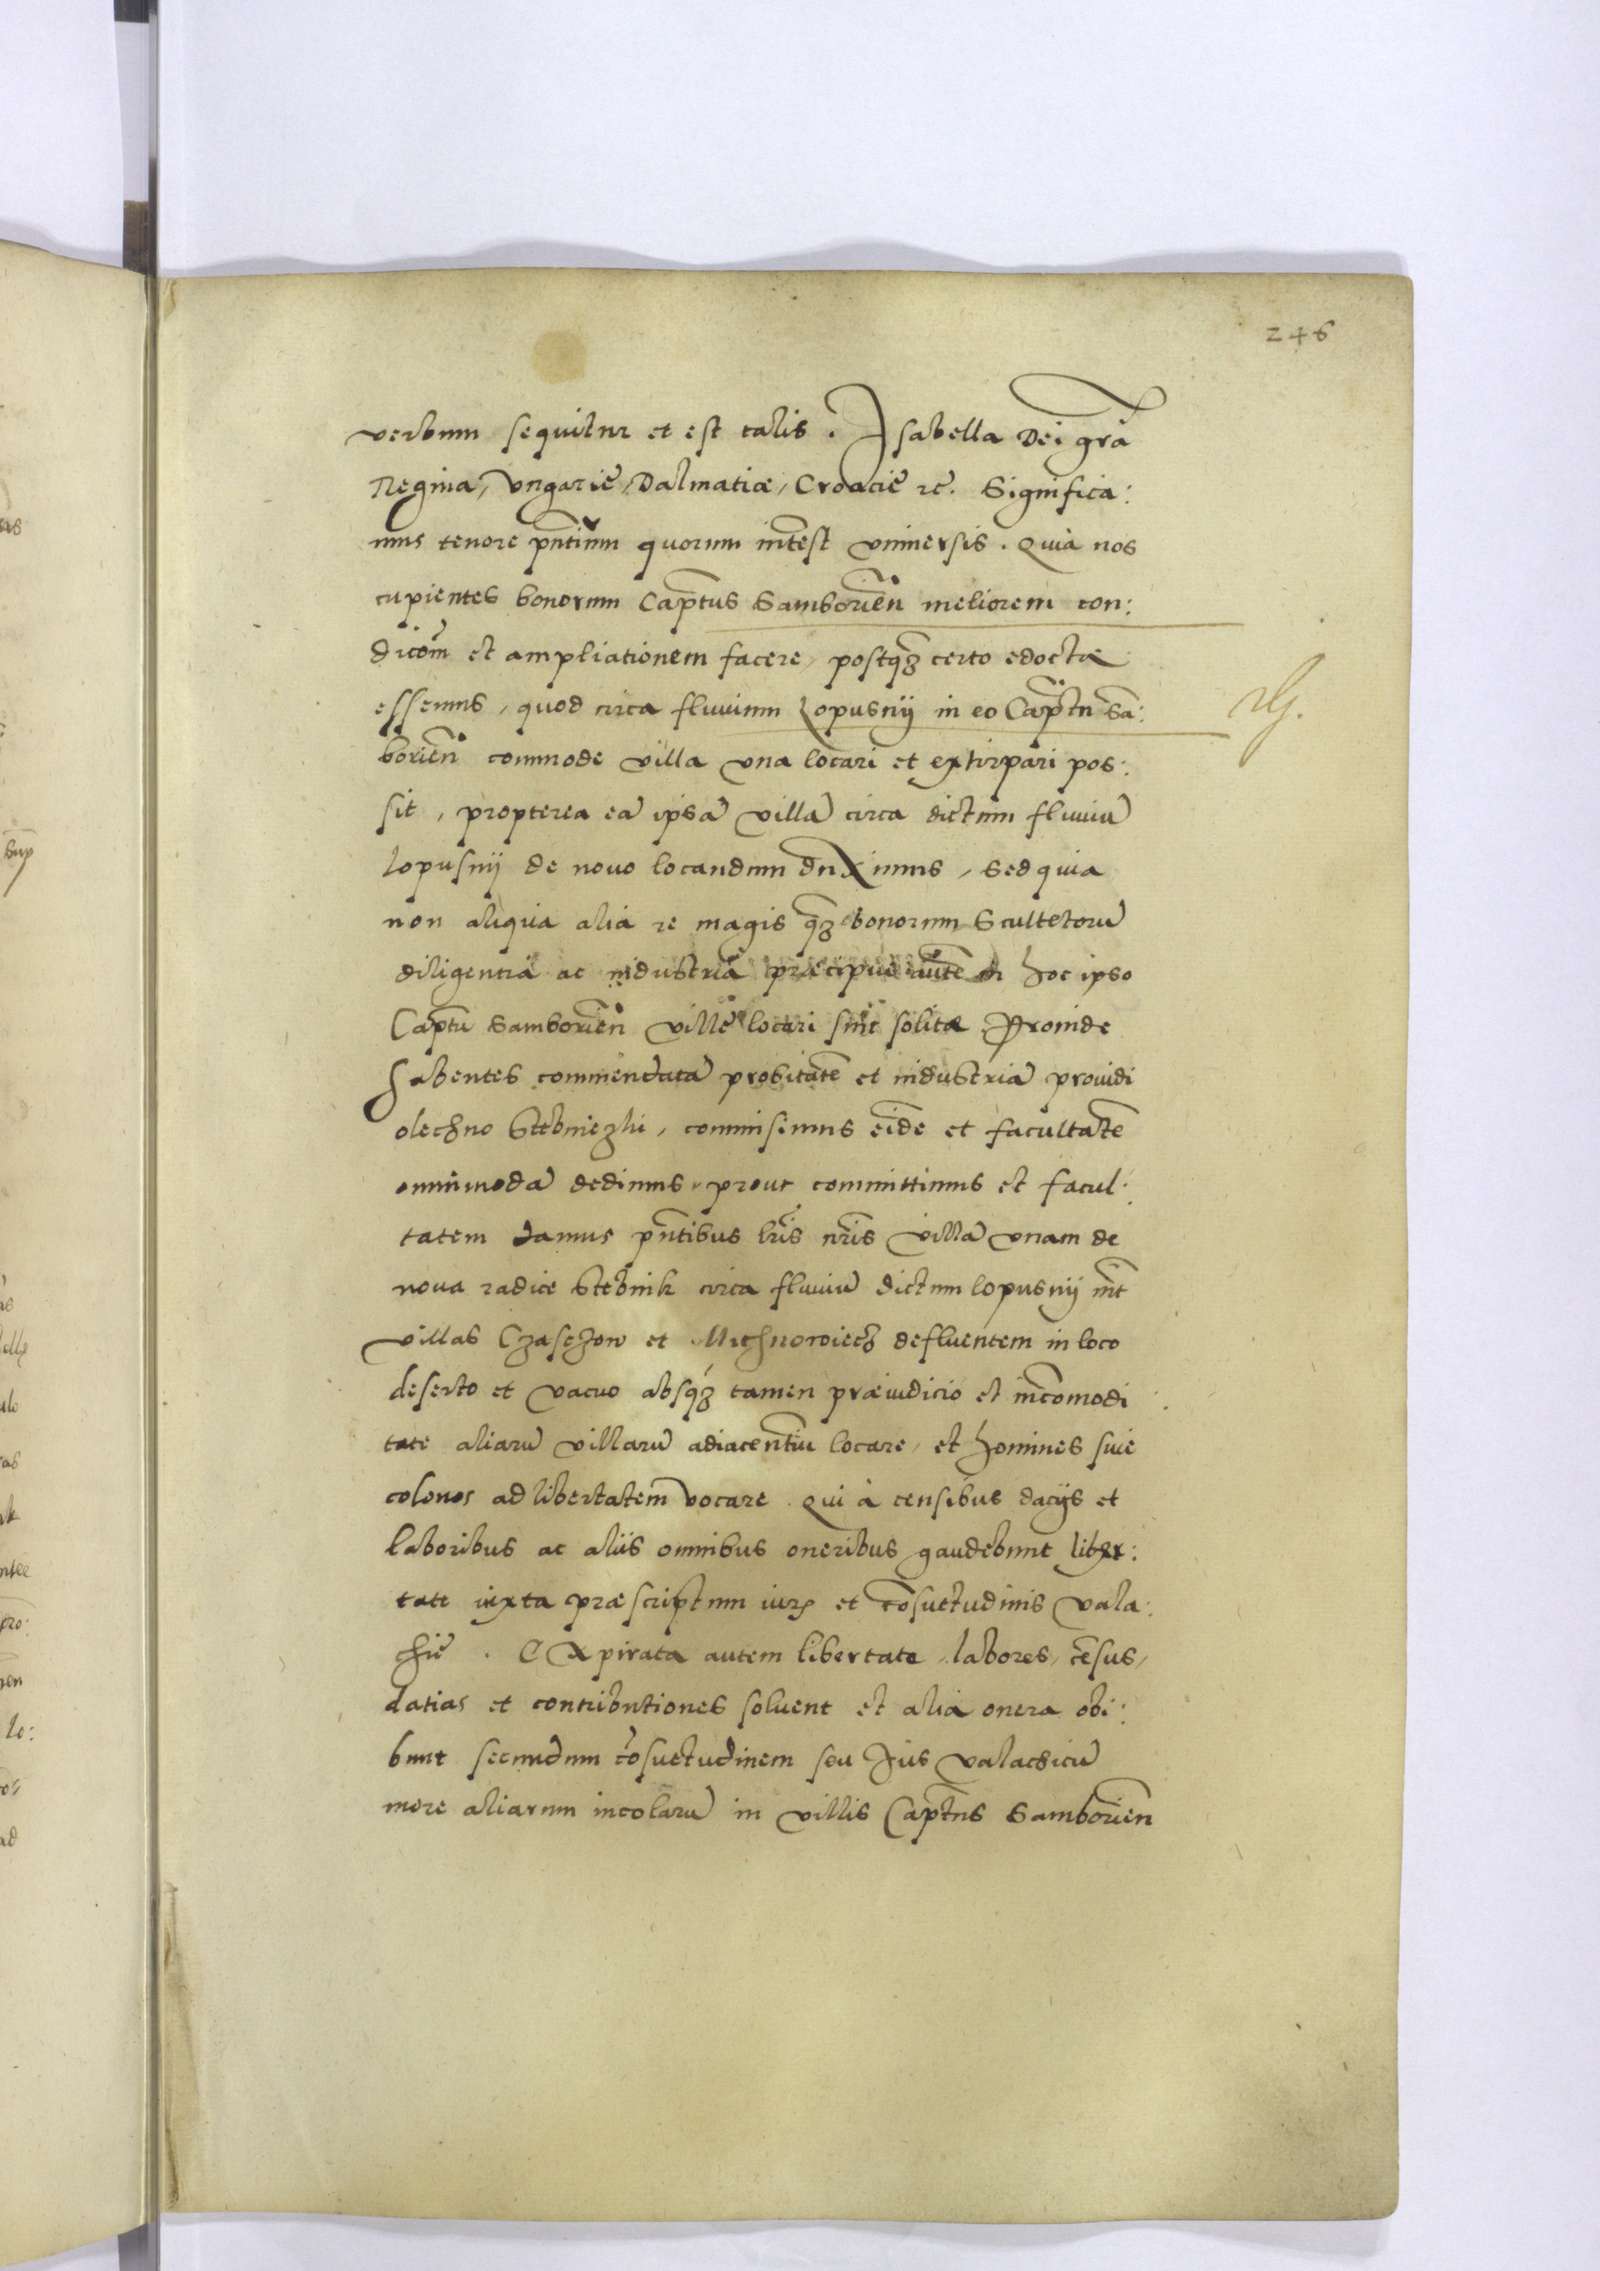 246
verbum sequitur et est talis. Isabella Dei grã
Regina, Vngariẽ, Dalmatiæ, Croaciẽ rc̃. Significa:
mus tenore pñtium quorum intẽst vniuersis. Quia nos
cupientes bonorum Cap̃tus Samborieñ meliorem con:
dicõm et ampliationem facere, postq̃z certo edoctæ
essemus, quod circa fluuium Lopusnij in eo Cap̃tu Sã:
borieñ commode villa vna locari et extirpari pos:
sit, propterea eã ipsã villã circa dictum fluuiũ
lopusnij de nouo locandum duximus, sed quia
non aliqua alia re magis q̃z bonorum Scultetorũ
diligentiã ac industriã præcipue autẽ in hoc ipso
Cap̃tu Samborieñ villẽ locari sint solitæ Proinde
habentes commendatã probitatẽ et industriã prouidi
olechno Stebniezki, commisimus eidẽ et facultatẽ
omnimodã dedimus, prout committimus et facul:
tatem damus pñtibus lr̃is nr̃is villã vnam de
noua radice Stebnik circa fluuiũ dictum lopusnij int̃
villas Czaschow et Michnowiecz defluentem in loco
deserto et vacuo absq́z tamen præiudicio et incõmodi
tate aliarũ villarũ adiacentiũ locare, et homines siue
colonos ad libertatem̃ vocare. Qui à censibus dacijs et
laboribus ac aliis omnibus oneribus gaudebunt liber:
tate iuxta præscriptum iurꝭ et cõsuetudinis vala:
chiẽ. Expirata autem libertate, labores, cẽsus,
datias et contributiones soluent et alia onera obi:
bunt secundum cõsuetudinem seu Jus valachicũ
more aliarum incolarũ in villis Cap̃tus Samborieñ